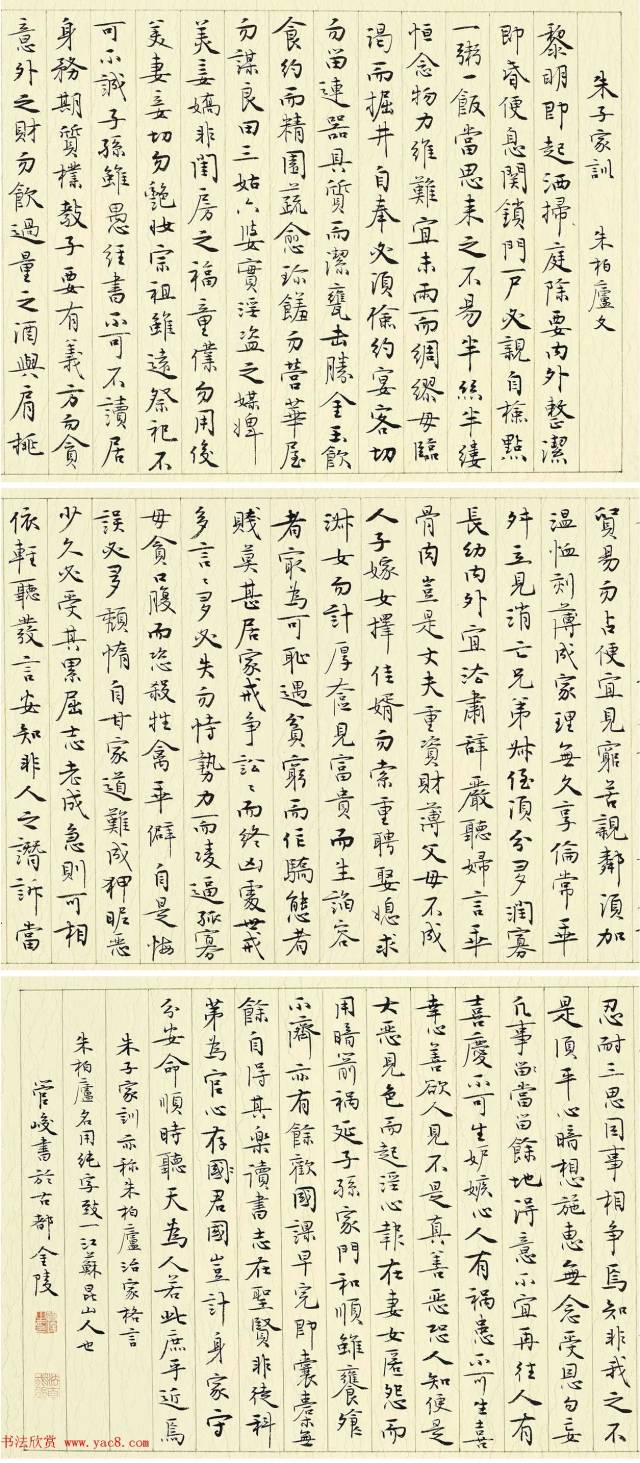 朱子家訓　朱柏廬文
黎明即起洒掃庭除要內外整潔
即昏便息関鎖門戶必親自檢點
一粥一飯當思來之不易半絲半縷
恒念物力維難宜未雨而綢繆毋臨
渴而掘井自奉必須儉約宴客切
勿留連器具質而潔甕缶勝金玉飲
食約而精園蔬愈珍饈勿營華屋
勿謀良田三姑六婆實淫盜之媒婢
美妾嬌非閨房之福童僕勿用俊
美妻妾切勿艷妝宗祖雖遠祭祀不
可不誠子孫雖愚經書不可不讀居
身務期質樸教子要有義方勿貪
意外之財勿飲過量之酒與肩挑
貿易勿占便宜見窮苦親鄰須加
溫恤刻薄成家理無久享倫常乖
舛立見消亡兄弟叔侄須分多潤寡
長幼內外宜法肅辭嚴聽婦言乖
骨肉豈是丈夫重資財薄父母不成
人子嫁女擇佳婿勿索重聘娶媳求
淑女勿計厚奩見富貴而生諂容
者最為可恥遇貧窮而作驕態者
賤莫甚居家戒爭訟訟而終凶處世戒
多言言多必失勿恃勢力而凌逼孤寡
毋貪口腹而恣殺牲禽乖僻自是悔
誤必多頹惰自甘家道難成狎昵惡
少久必受其累屈志老成急則可相
依輕聽發言安知非人之譖訴當
忍耐三思因事相爭焉知非我之不
是須平心暗想施惠無念受恩勿忘
凡事當留餘地得意不宜再往人有
喜慶不可生妒嫉心人有禍患不可生喜
幸心善欲人見不是真善惡恐人知便是
大惡見色而起淫心報在妻女匿怨而
用暗箭禍延子孫家門和順雖饔飧
不濟亦有餘歡國課早完即囊橐無
餘自得其樂讀書志在聖賢非徒科
第為官心存國君國豈計身家守
分安命順時聽天為人若此庶乎近焉
朱子家訓亦稱朱柏廬治家格言
朱柏廬名用純字致一江蘇昆山人也
管峻書於古都金陵
书法欣赏 www.yac8.com